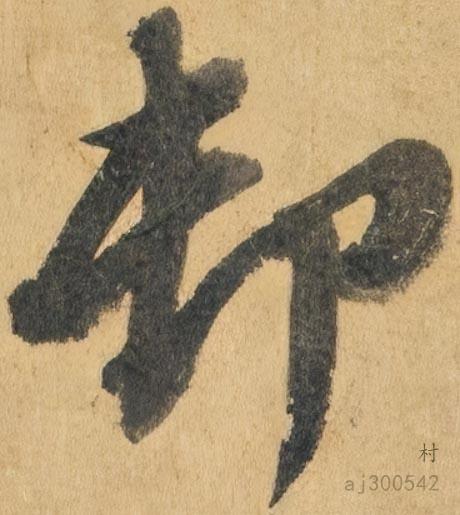 邨
村
aj300542